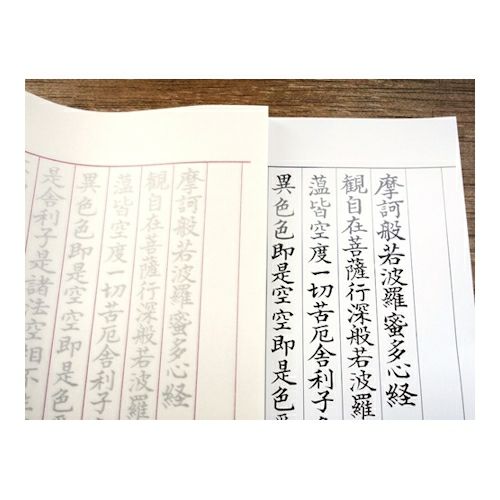 摩訶般若波羅蜜多心経
観自在菩薩行深般若波羅
薀皆空度一切苦厄舎利子
異色色即是空空即是色
摩訶般若波羅蜜多心経
観自在菩薩行深般若波羅
薀皆空度一切苦厄舎利子
異色色即是空空即是色
是舎利子是諸法空相不